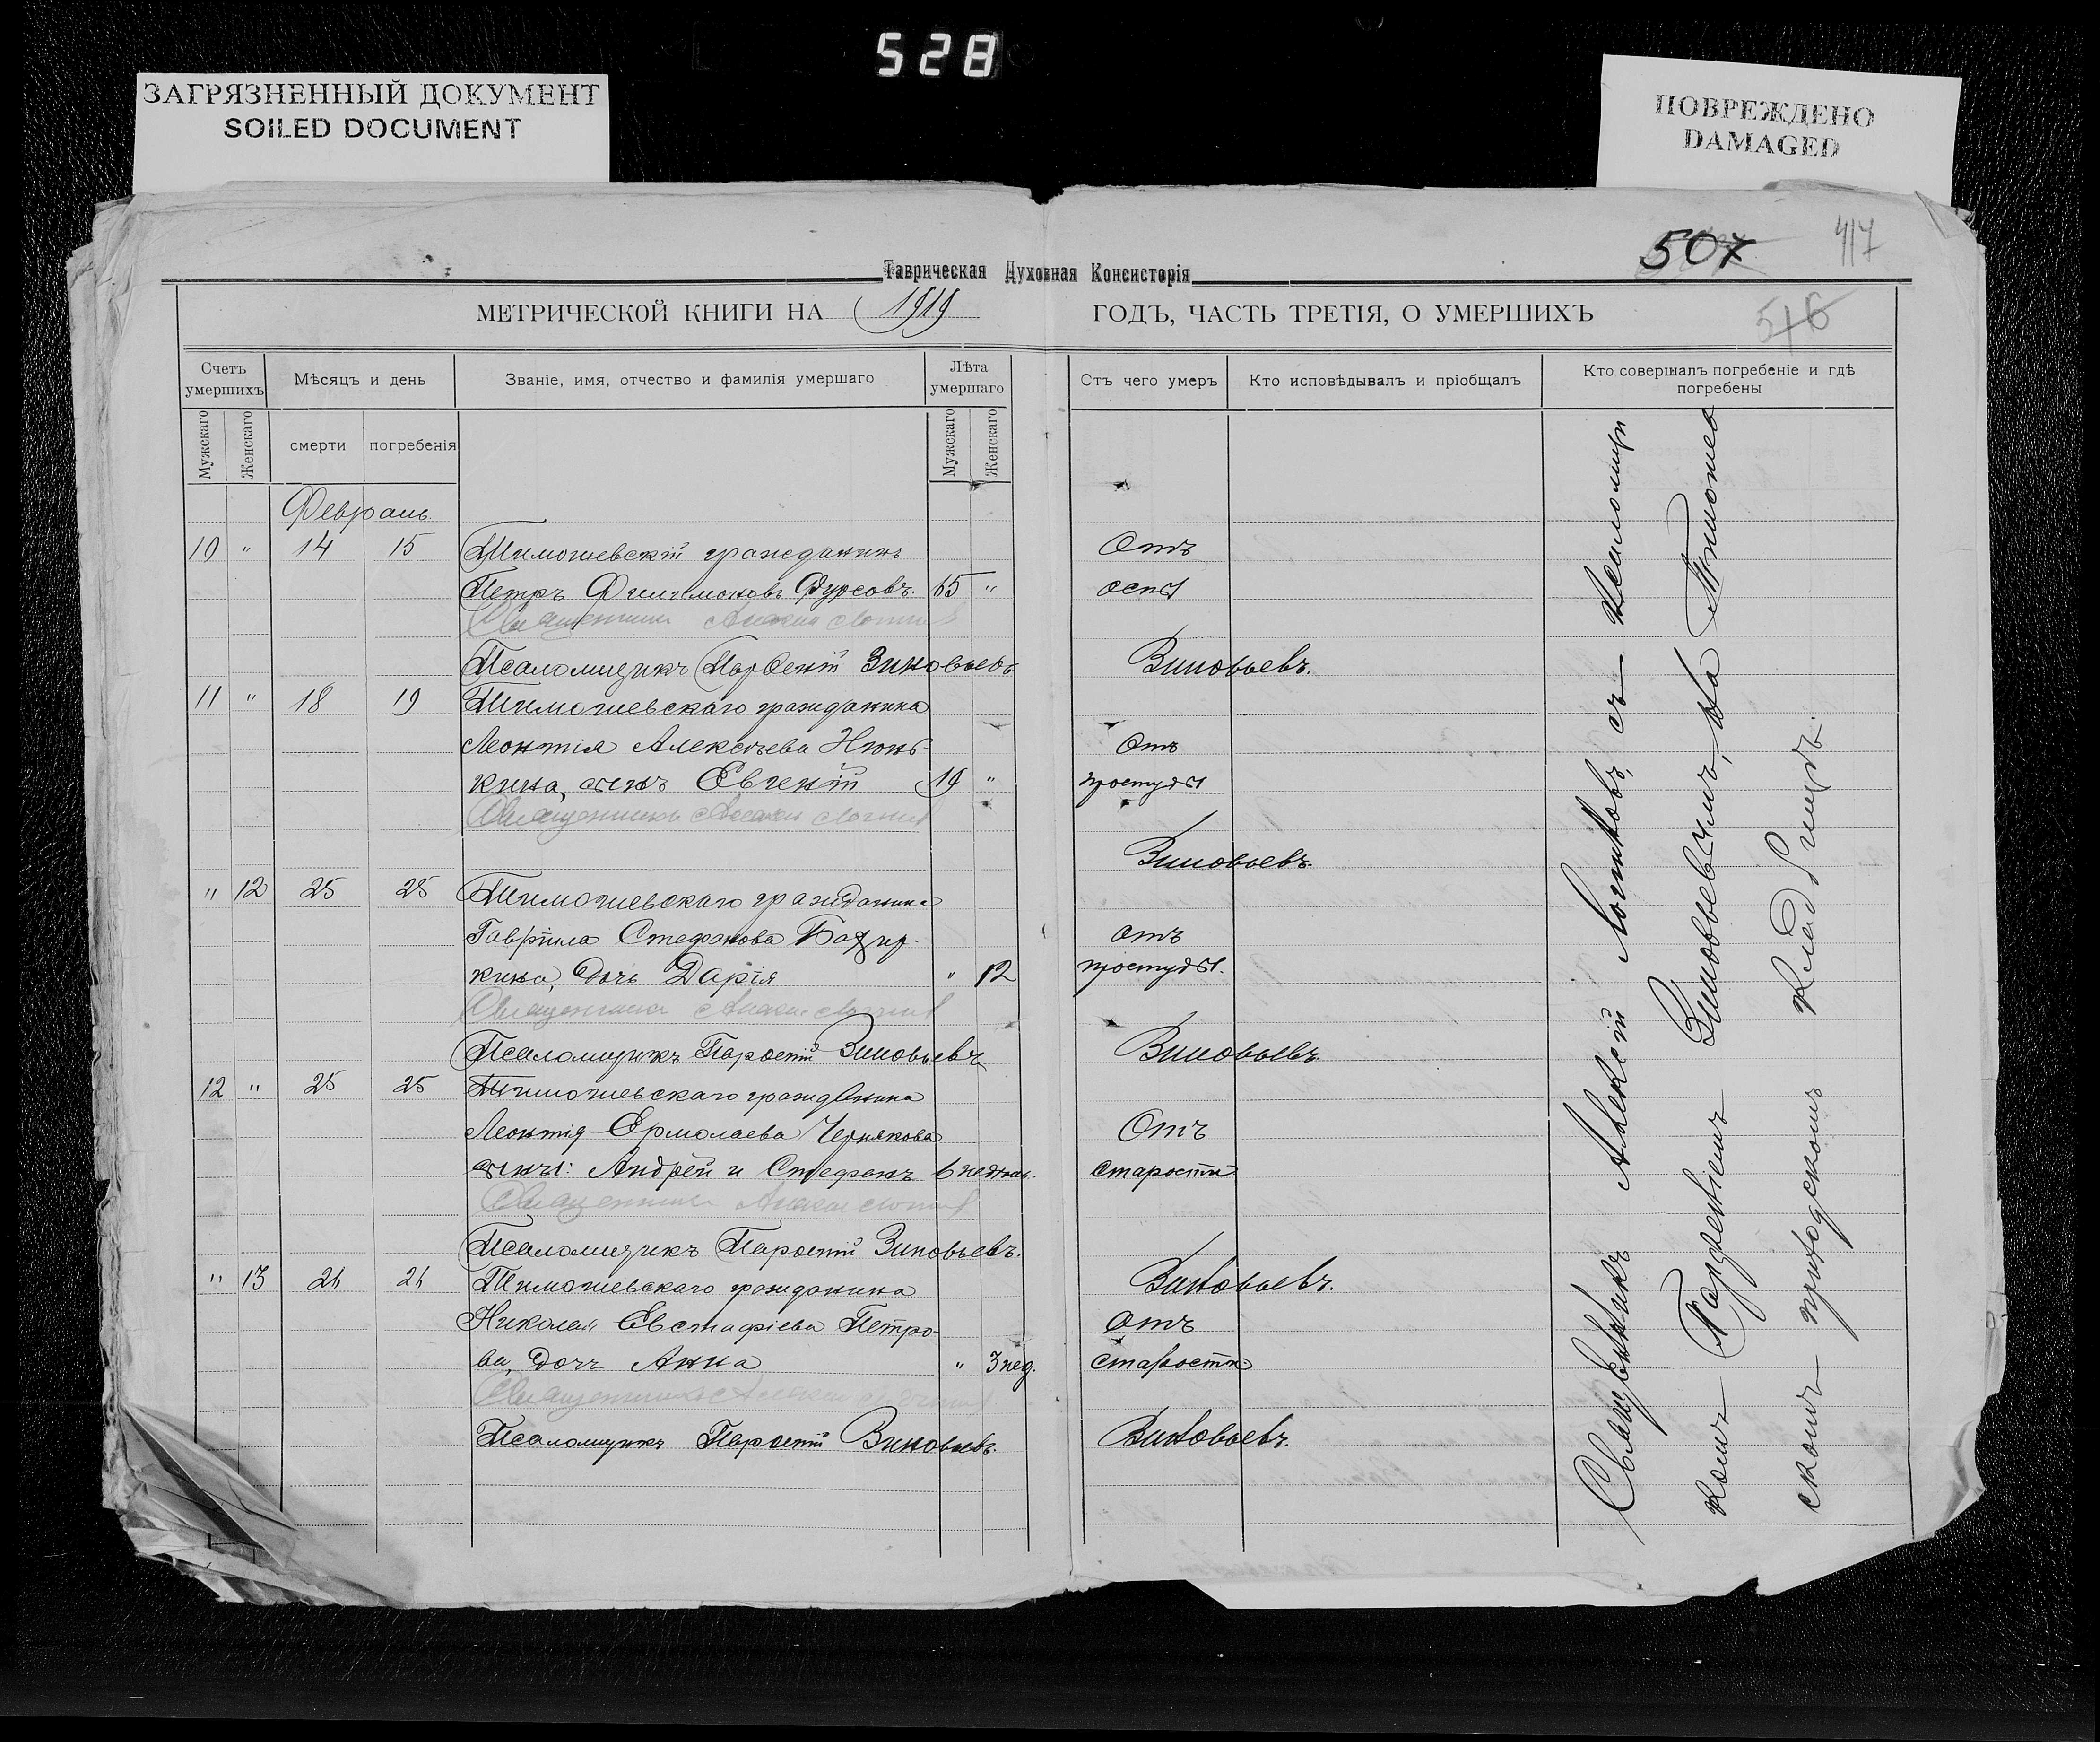 528
ЗАГРЯЗНЕННЫЙ ДОКУМЕНТ
SOILED DOCUMENT
ПОВРЕЖДЕНО
DAMAGED
507
417
516
Таврическая Духовная Консисторія
МЕТРИЧЕСКОЙ КНИГИ НА 1919 ГОДЪ, ЧАСТЬ ТРЕТІЯ, О УМЕРШИХЪ
Счетъ умершихъ
Мѣсяцъ и день
Званіе, имя, отчество и фамилія умершаго
Лѣта умершаго
Отъ чего умеръ
Кто исповѣдывалъ и пріобщалъ
Кто совершалъ погребеніе и гдѣ погребены
Мужскаго
Женскаго
смерти
погребенія
Мужскаго
Женскаго
Февраль
10 " 14 15 Тимошевскій гражданинъ Отъ
Петръ Филимоновъ Фурсовъ. 65 " оспы
Священникъ
Псаломщикъ Парѳеній Зиновьевъ Зиновьевъ.
11 " 18 19 Тимошевскаго гражданина
Леонтія Алексѣева Нюнь- Отъ
кина, сынъ Евгеній 19 " простуды
Священникъ
Зиновьевъ.
" 12 25 25 Тимошевскаго гражданина
Гавріила Стефанова отъ
кина, дочь Дарія " 12 простуды.
Священникъ
Псаломщикъ Парѳеній Зиновьевъ Зиновьевъ
12 " 25 25 Тимошевскаго гражданина
Леонтія Ермолаева Чернякова Отъ
сыны: Андрей и Стефанъ 6 недѣль. старости
Священникъ
Псаломщикъ Парѳеній Зиновьевъ.
" 13 26 26 Тимошевскаго гражданина Зиновьевъ.
Николая Евстафіева Петро- отъ
ва, дочь Анна " 3 нед. старости
Священникъ
Псаломщикъ Парѳеній Зиновьевъ. Зиновьевъ.
Священникъ Алексій Логиновъ, съ псаломщи
комъ Зиновьевымъ, на Тимошев
скомъ приходскомъ кладбищѣ.